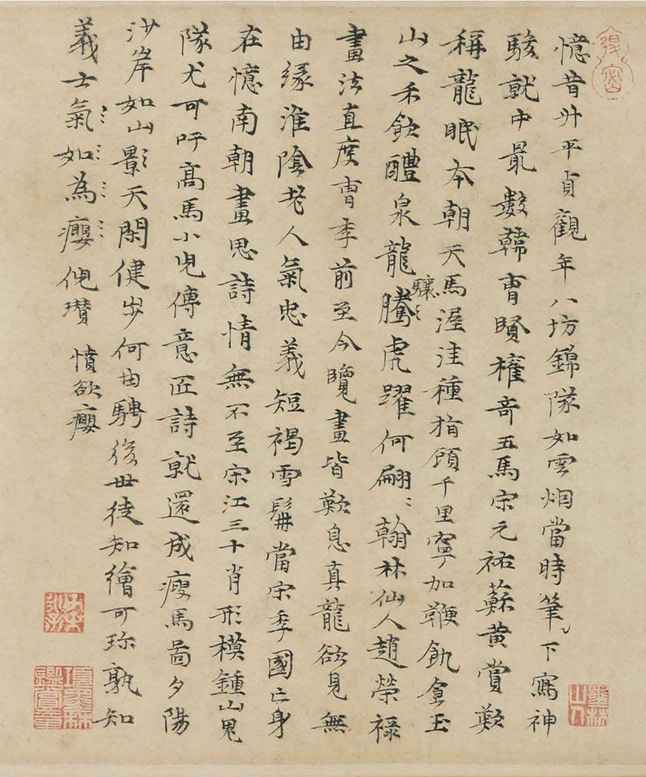 憶昔升平貞觀年八坊錦隊如雲烟當時筆下寫神
駿就中最數韓曹賢權奇五馬宋元祐蘇黃賞歎
稱龍眠本朝天馬渥洼種指顧千里寧加鞭飢食玉
山之禾飲醴泉龍騰驤虎躍何翩〻翰林仙人趙榮祿
畫法直度曹李前至今覽畫皆歎息真龍欲見無
由緣淮陰老人氣忠義短褐雪髯當宋季國亡身
在憶南朝畫思詩情無不至宋江三十肖形模鍾山鬼
隊尤可吁高馬小兒傳意匠詩就還成瘦馬啚夕陽
沙岸如山影天閑健步何由騁後世徒知繪可珍孰知
義士氣如為癭倪瓚 憤欲癭